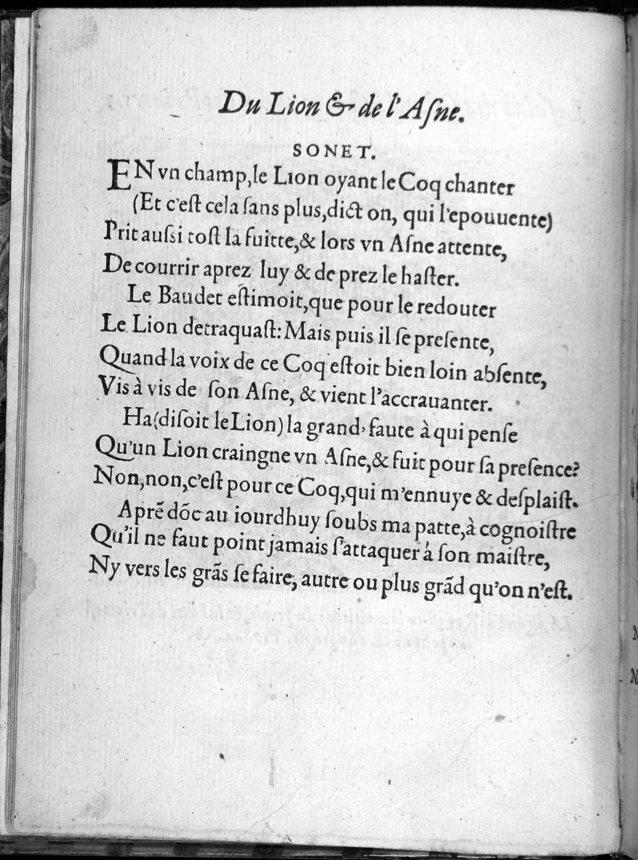 Du Lion & de l'Aſne.
SONET.
EN vn champ, le Lion oyant le Coq chanter
(Et c'eſt cela ſans plus, dict on, qui l'epouuente)
Prit auſsi toſt la fuitte, & lors vn Aſne attente,
De courrir aprez luy & de prez le haſter.
Le Baudet eſtimoit, que pour le redouter
Le Lion detraquaſt: Mais puis il ſe preſente,
Quand la voix de ce Coq eſtoit bien loin abſente,
Vis à vis de ſon Aſne, & vient l'accrauanter.
Ha (diſoit le Lion) la grand' faute à qui penſe
Qu'un Lion craingne vn Aſne, & fuit pour ſa preſence?
Non, non, c'eſt pour ce Coq, qui m'ennuye & deſplaiſt.
Aprẽ dõc au iourdhuy ſoubs ma patte, à cognoiſtre
Qu'il ne faut point jamais ſ'attaquer á ſon maiſtre,
Ny vers les grãs ſe faire, autre ou plus grãd qu'on n'eſt.